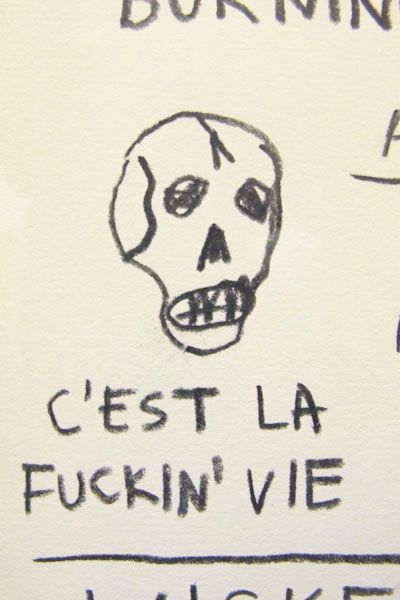 BURNIN
C'EST LA
FUCKIN' VIE